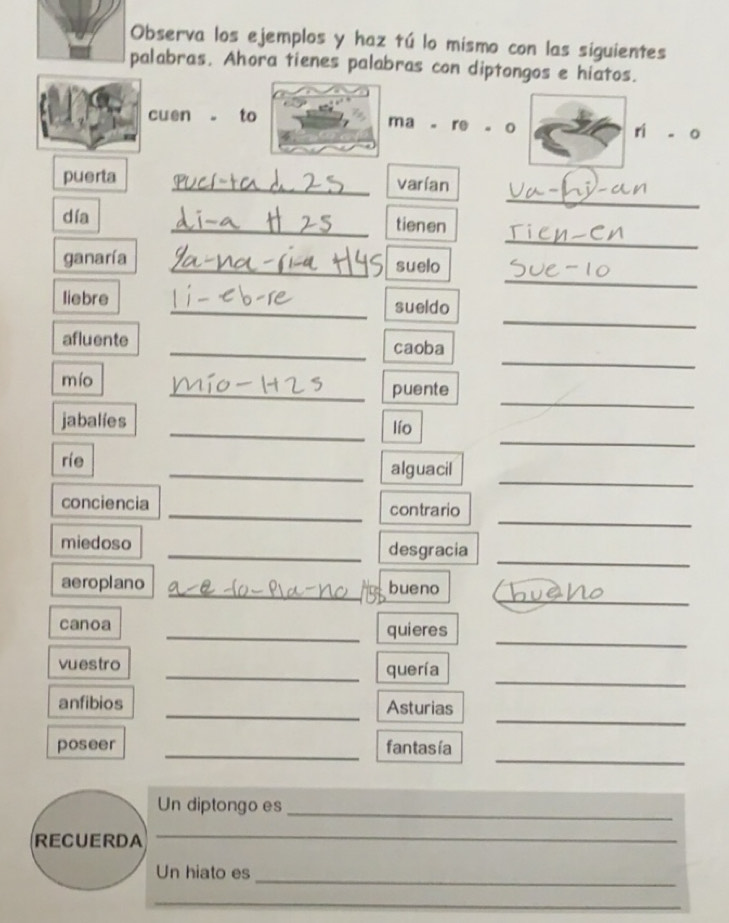 Observa los ejemplos y haz tú lo mismo con las siguientes
palabras. Ahora tienes palabras con diptongos e hiatos.
cuen - to
ma - re - o
rí - o
puerta d. 2S
varían
día di-a H 2S
tienen
ganaría ga-na-rí-a H4S
suelo sue-lo
liebre li-eb-re
sueldo
afluente
caoba
mío mío-H2S
puente
jabalíes
lío
ríe
alguacil
conciencia
contrario
miedoso
desgracia
aeroplano
bueno bueno
canoa
quieres
vuestro
quería
anfibios
Asturias
poseer
fantasía
RECUERDA
Un diptongo es
Un hiato es